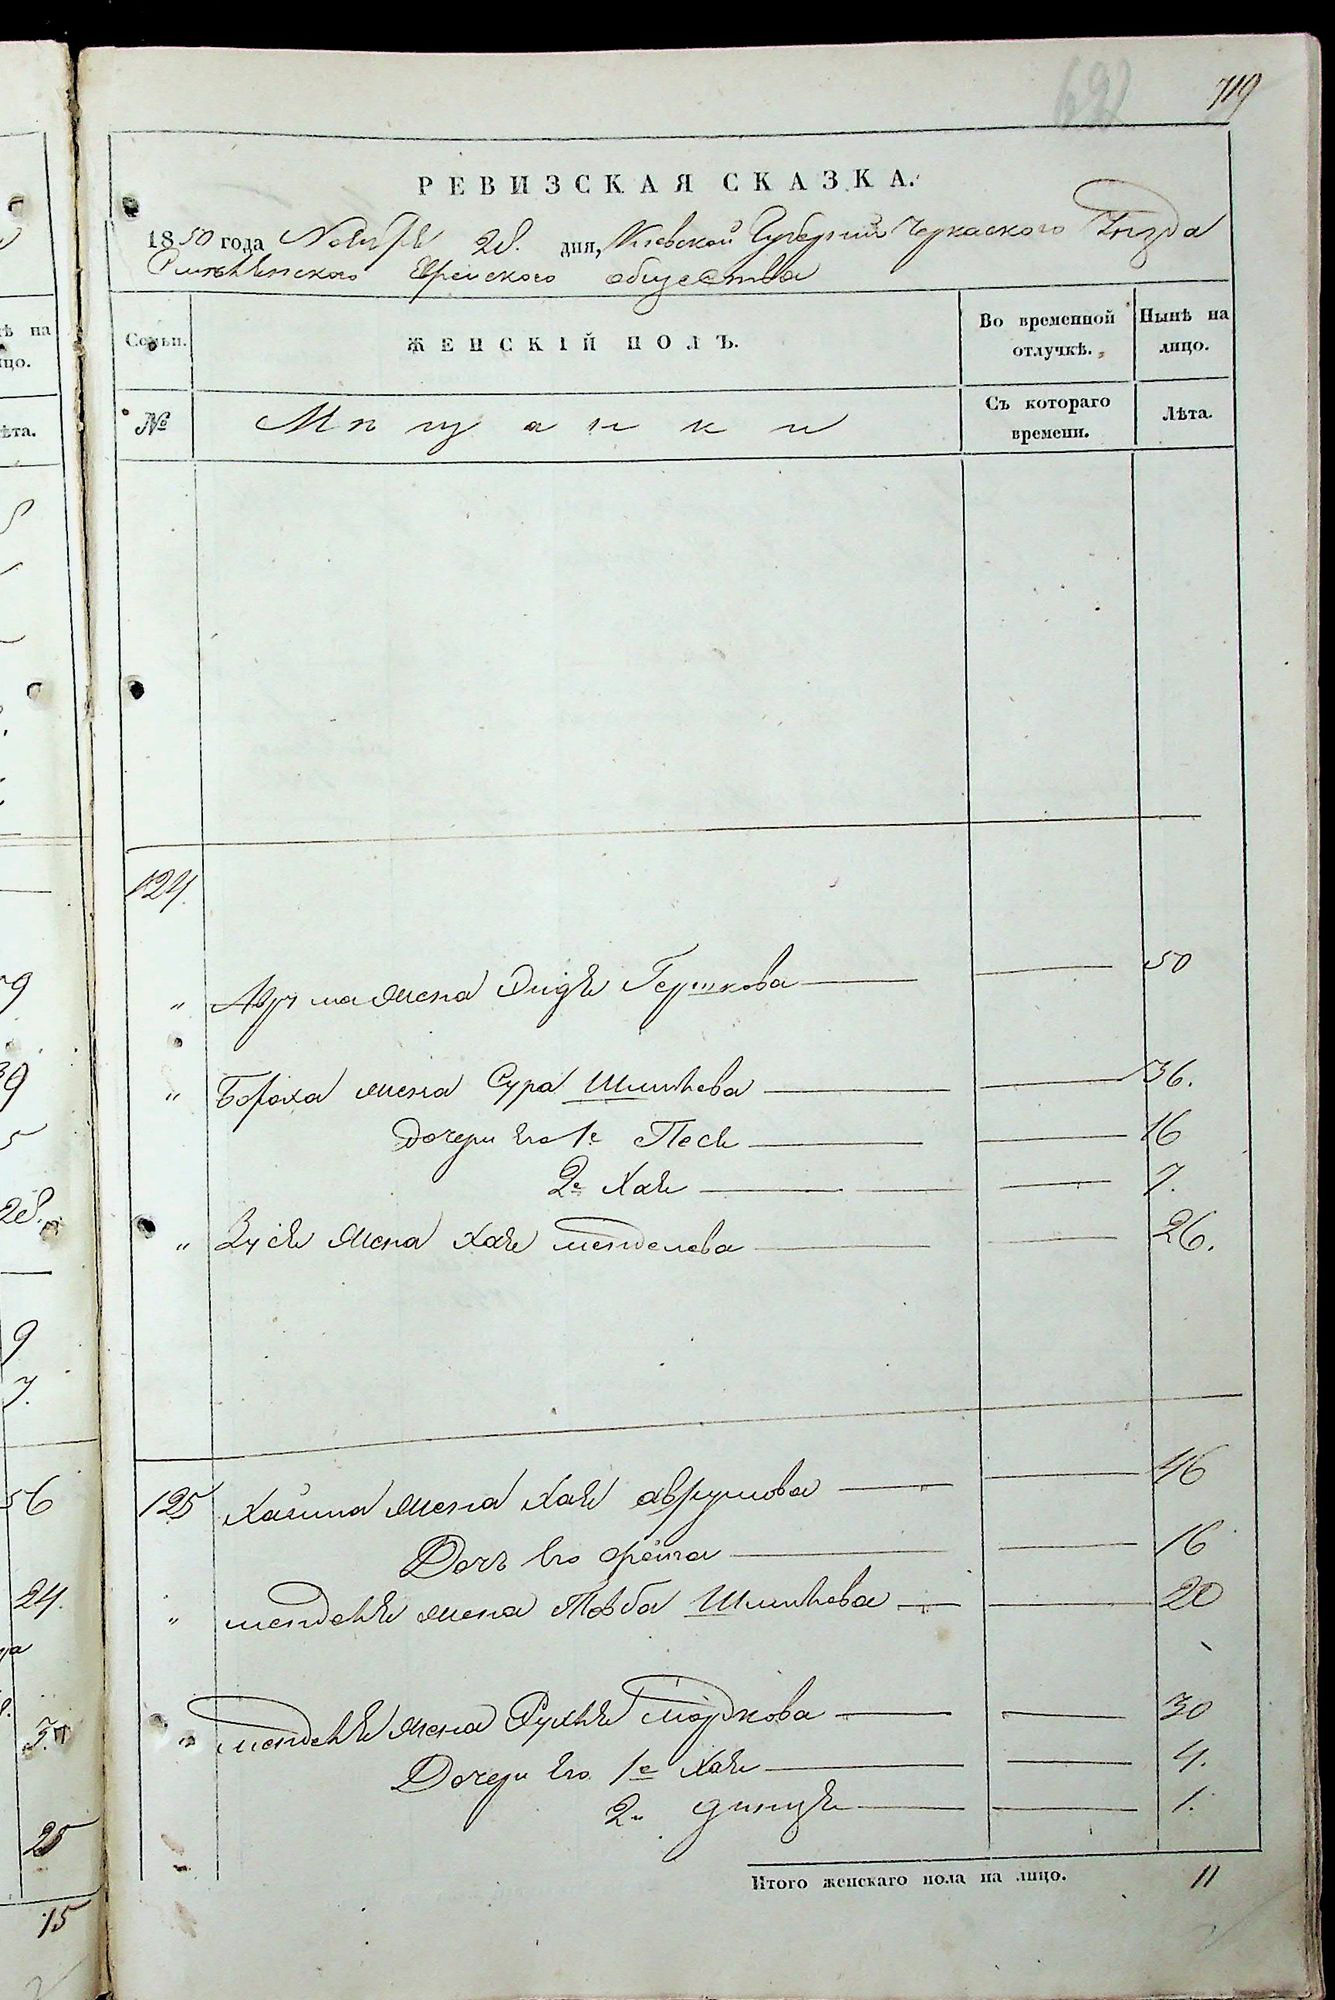 719
692
РЕВИЗСКАЯ СКАЗКА.
1850 года Ноября 28. дня, Киевской Губернии Черкаского Уезда
Смелянского Еврейского общества
Семьи. ЖЕНСКІЙ ПОЛЪ. Во временной отлучкѣ. Нынѣ на лицо.
№ Мѣщанки Съ котораго времени. Лѣта.
124.
" жена Гершкова 50
" Бороха жена Сура Шмилева 36.
дочери его 1е Песя 16
2е Хая 7.
" Зуся жена Хая менделева 26.
125 Хаима жена Хая аврумова 46
Дочь его фейга 16
" менделя жена Товба Шмилева 20
" менделя жена Рухля мордкова 30
Дочери его 1е Хая 4.
2я 1.
Итого женскаго пола на лицо. 11